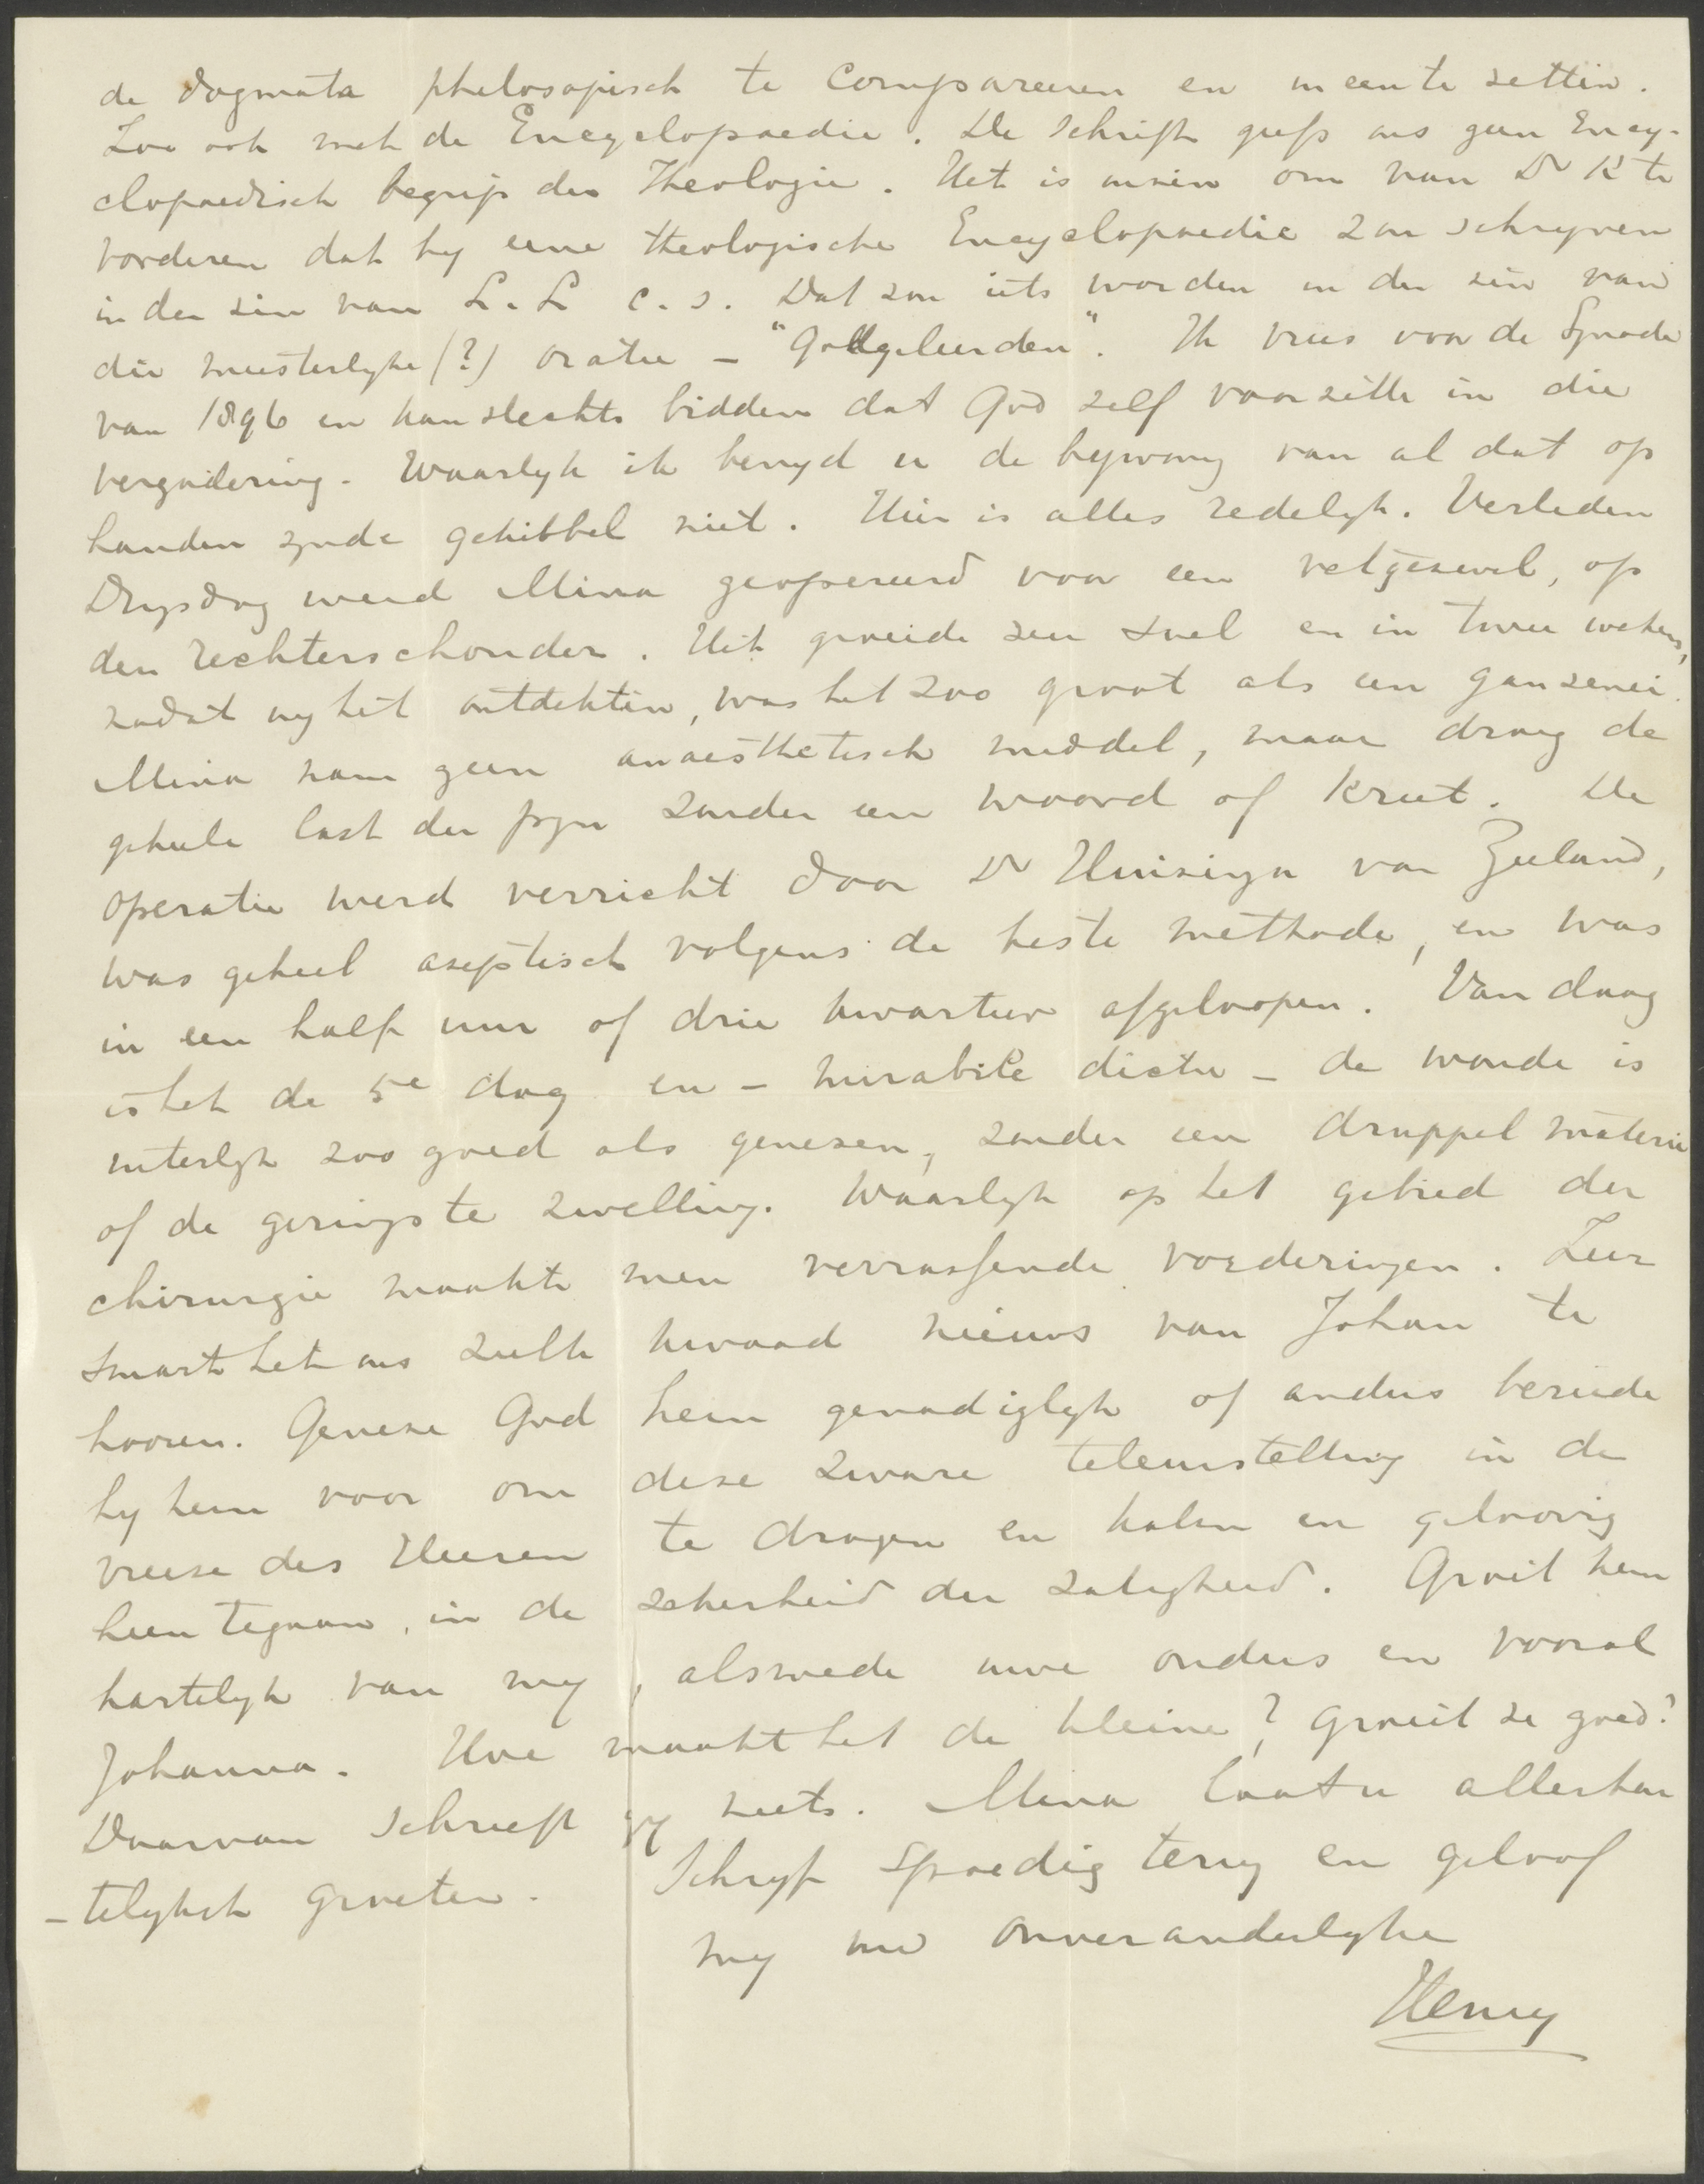 de dogmata philosopisch te compareeren en ineen te zetten.
Zoo ook met de Encyclopaedie. De Schrift geeft ons geen Ency-
clopaedisch begrip der Theologie. Het is onzin om van Dr K te
vorderen dat hy eene theologische Encyclopaedie zou schryven
in den zin van L. L c.s. Dat zou iets worden in den zin van
die meesterlyke (?) oratie – "Godgeleerden". Ik vrees voor de Synode
van 1896 en kan slechts bidden dat God zelf voorzitte in die
vergadering. Waarlyk ik benyd u de bywoning van al dat op
handen zynde gekibbel niet. Hier is alles redelyk. Verleden
Dinsdag werd Mina geopereerd voor een vetgezwel, op
den rechterschouder. Het groeide zeer snel en in twee weken,
nadat wy het ontdekten, was het zoo groot als een ganzenei.
Mina nam geen anaesthetisch middel, maar droeg de
geheele last der pyn zonder een woord of kreet. De
operatie werd verricht door Dr Huizinga van Zeeland,
was geheel aseptisch volgens de beste methode, en was
in een half uur of drie kwartier afgeloopen. Van daag
is het de 5e dag en – mirabile dictu – de wonde is
uiterlyk zoo goed als genezen, zonder een druppel materie
of de geringste zwelling. Waarlyk op het gebied der
chirurgie maakte men verrassende vorderingen. Zeer
smart het ons zulk kwaad nieuws van Johan te
hooren. Geneze God hem genadiglyk of anders bereide
hy hem voor om deze zware teleurstelling in de
vreeze des Heeren te dragen en kalm en geloovig
heen te gaan, in de zekerheid der zaligheid. Groet hem
hartelyk van my, alsmede uwe ouders en vooral
Johanna. Hoe maakt het de kleine? Groeit ze goed?
Daarvan schreeft gy niets. Mina laat u allerhar
-telykst groeten. Schryf spoedig terug en geloof
my uw onveranderlyke
Henry